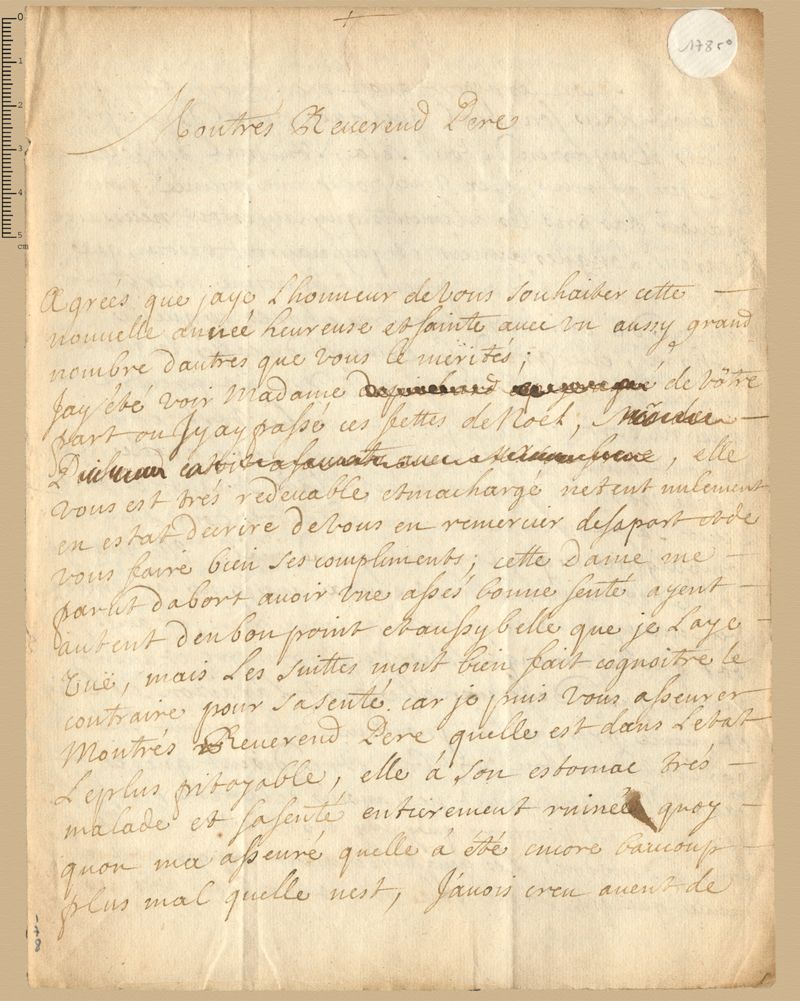 1785°
Montres Reuerend Pere
Agreés que jaye Lhonneur de vous souhaiter cette
nouvelle année heureuse et sainte avec vn aussy grand
nombre dautres que vous le mérités ;
Jay été voir Madame de vôtre
part ou Jy ay passé ces fettes de Noel ,
, elle
vous est trés redeuable et ma chargé netent nulement
en estat décrire de vous en remercier de sa part et de
vous faire bien ses compliments ; cette Dame me
parut dabort avoir vne assés bonne senté ayent
autent denbonpoint et aussy belle que je Laye
vuë , mais Les suittes mont bien fait cognoitre le
contraire pour sa senté . car je puis vous asseurer
Montrés Reuerend Pere quelle est dans Letat
Le plus pitoyable , elle á son estomac trés
malade et sa senté entierement ruineé quoy
quon ma asseuré quelle á été encore baucoup
plus mal quelle nest , J'auois creu auent de
178
0
1
2
3
4
5
cm